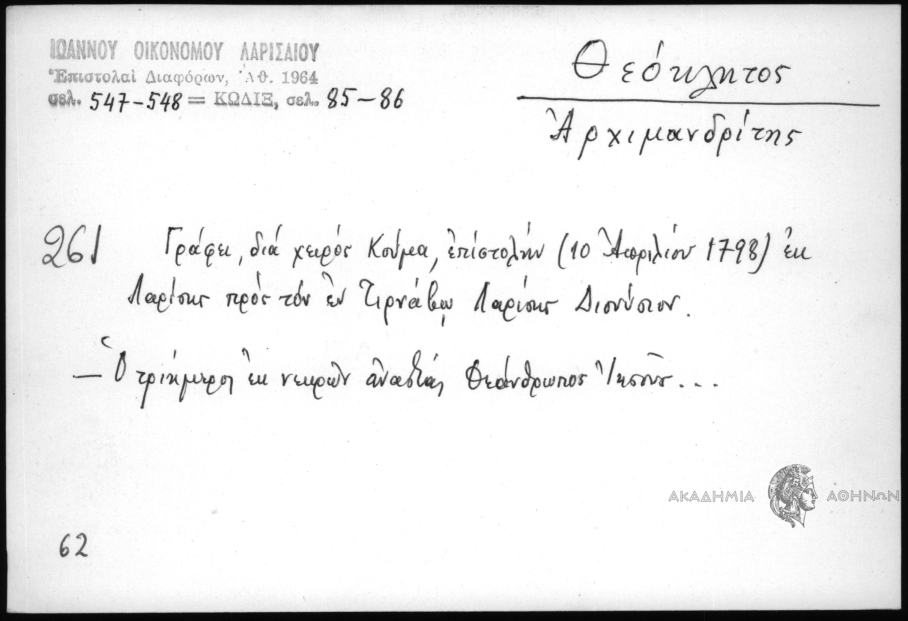 ΙΩΑΝΝΟΥ ΟΙΚΟΝΟΜΟΥ ΛΑΡΙΣΑΙΟΥ
Ἐπιστολαὶ Διαφόρων, Ἀθ. 1964
σελ. 547-548 = ΚΩΔΙΞ, σελ. 85-86
Θεόκλητος
Ἀρχιμανδρίτης
261 Γράφει, διά χειρός Κούμα, ἐπιστολήν (10 Ἀπριλίου 1798) ἐκ
Λαρίσης πρός τόν ἐν Τιρνάβῳ Λαρίσης Διονύσιον.
— Ὁ τριήμερος ἐκ νεκρῶν ἀναστάς Θεάνθρωπος Ἰησοῦς...
ΑΚΑΔΗΜΙΑ ΑΘΗΝΩΝ
62